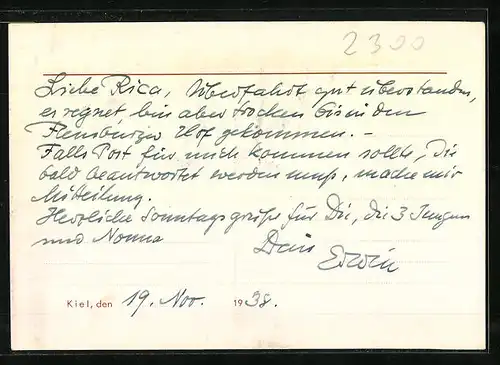 2300
Liebe Rica, Überfahrt gut überstanden,
es regnet, bin aber trocken bis in den
Flensburger Hof gekommen. –
Falls Post für mich kommen sollte, die
bald beantwortet werden muß, mache mir
Mitteilung.
Herzliche Sonntagsgrüße für Dir, die 3 Jungen
und Nonna
Dein
Erwin
Kiel, den 19. Nov. 1938.